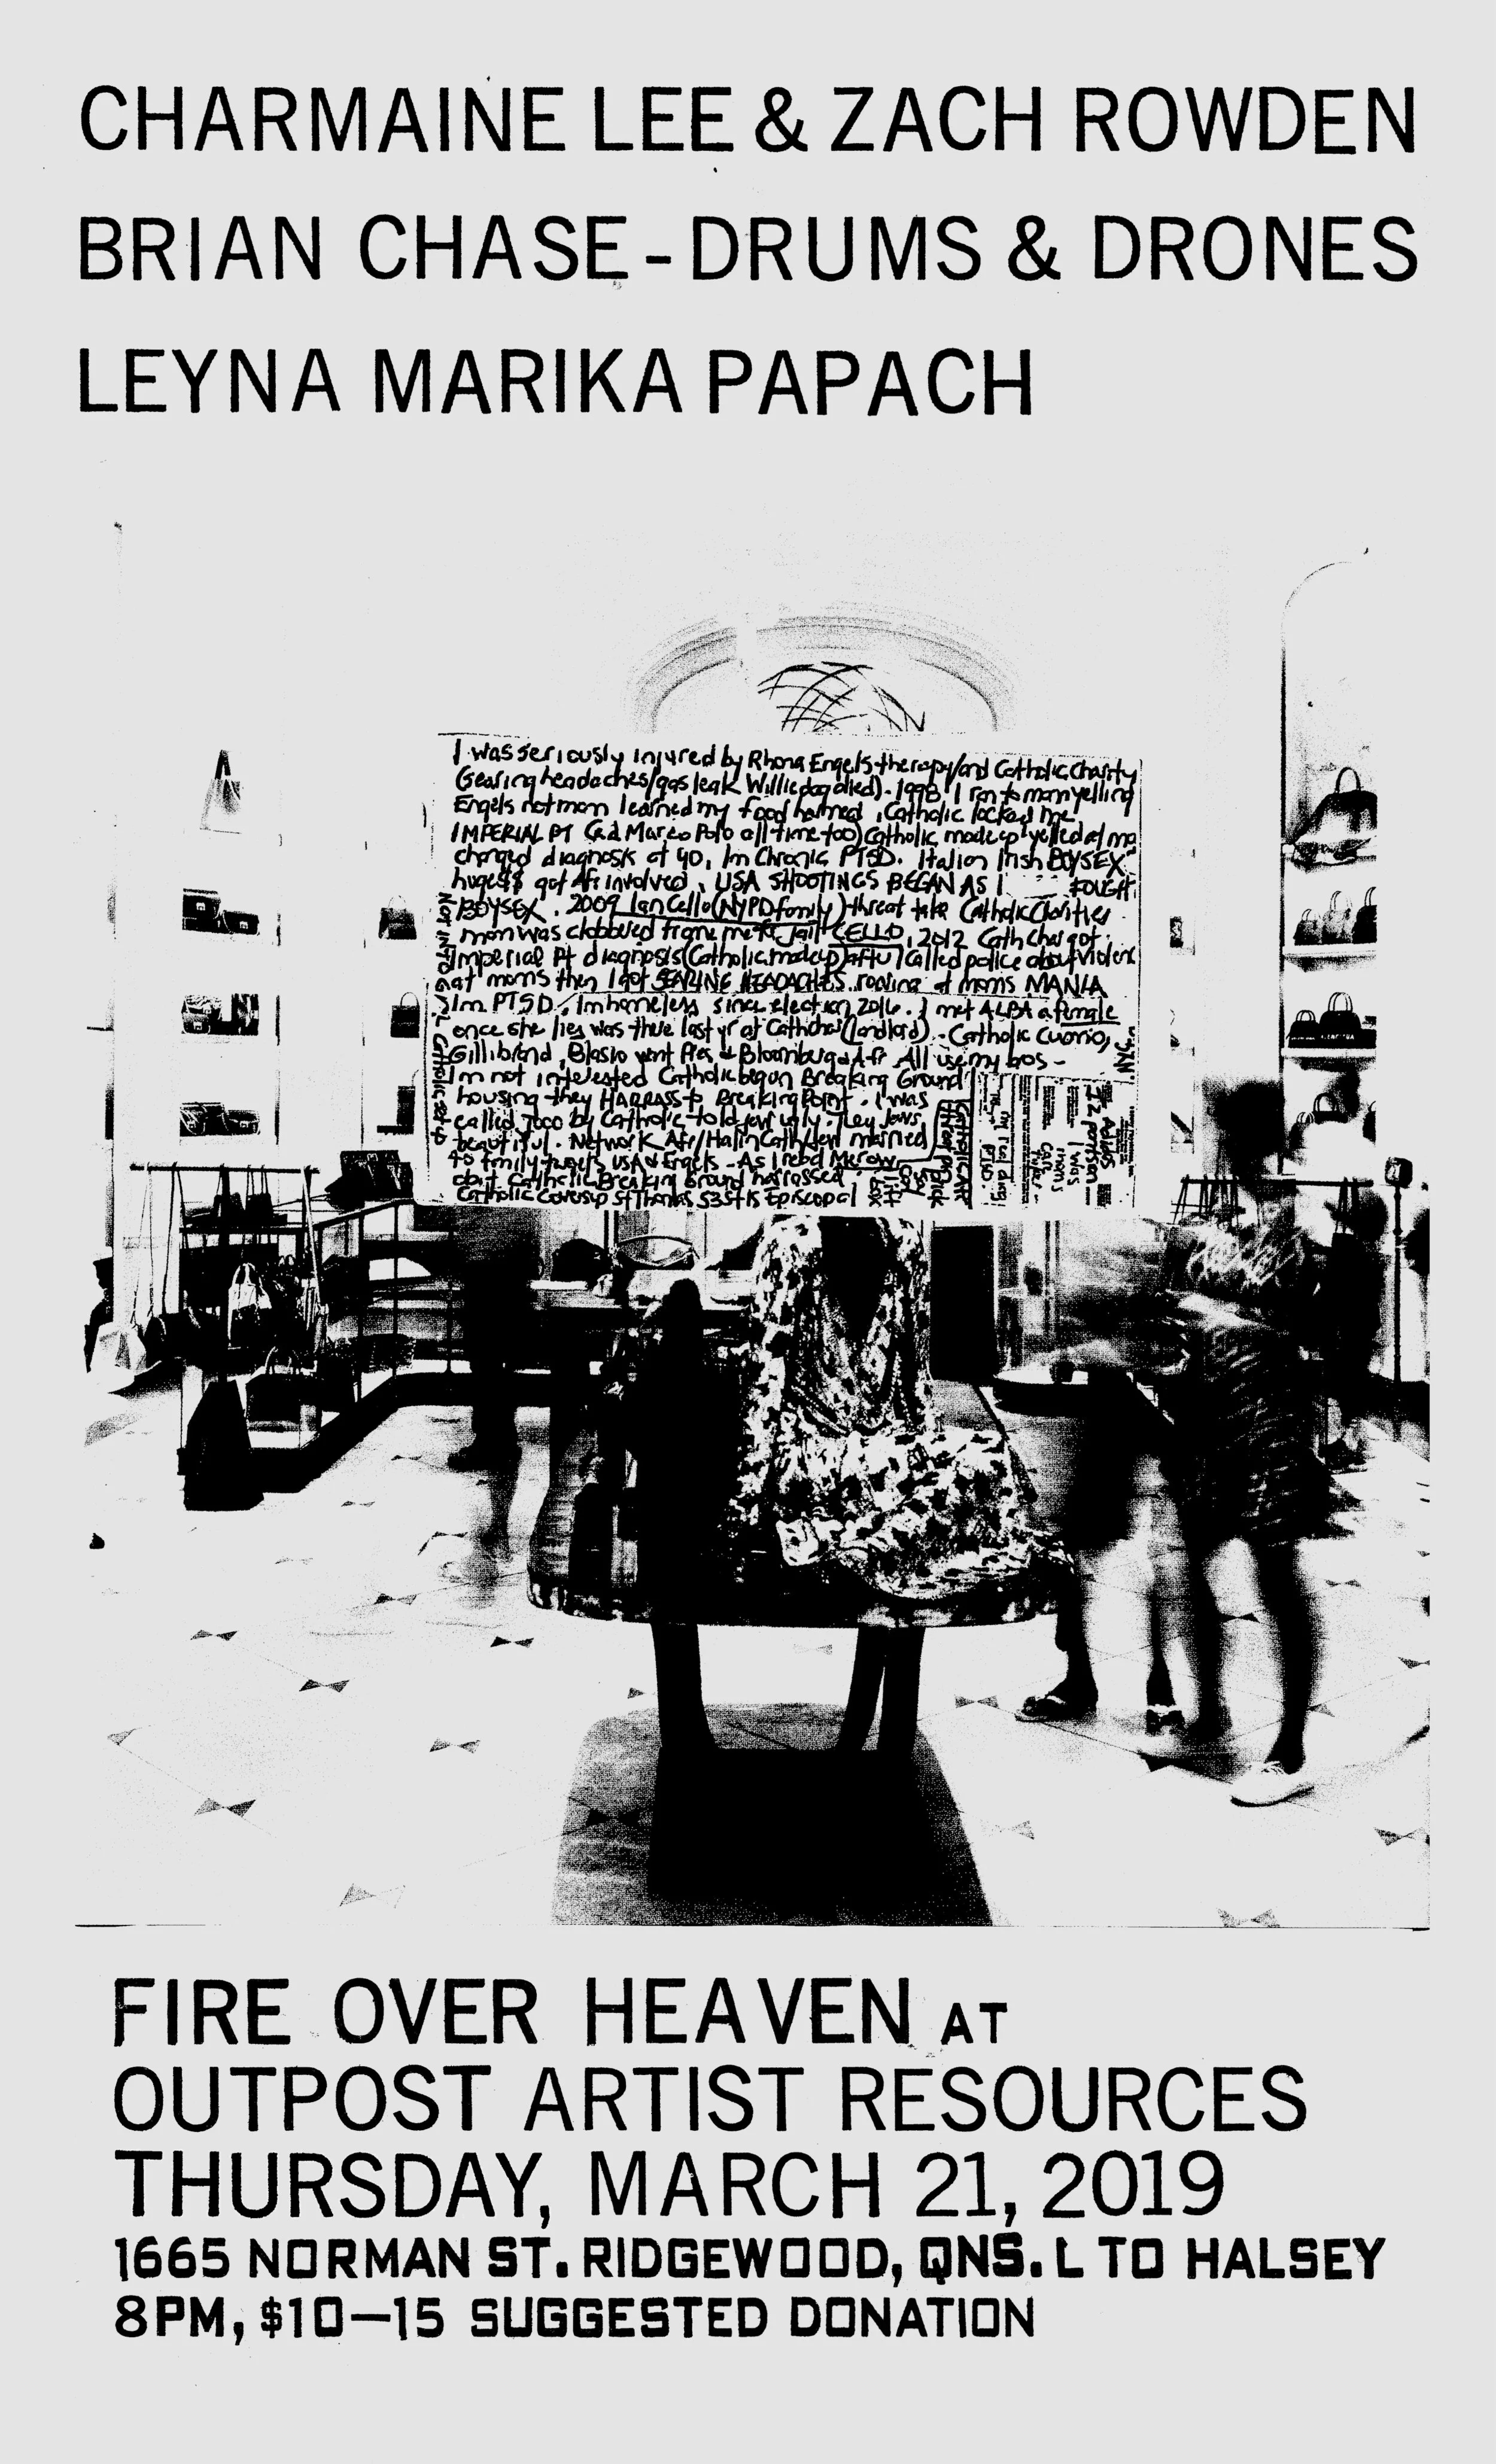 CHARMAINE LEE & ZACH ROWDEN
BRIAN CHASE - DRUMS & DRONES
LEYNA MARIKA PAPACH
I was seriously injured by Rhona Engels therapy/and Catholic Charity
(Searing headaches/gas leak Willie dog died). 1998 I ran to mom yelling
Engels not mom learned my food harmed, Catholic locked me
IMPERIAL PT Marco Polo all time too) Catholic made up yelled at me
changed diagnosis at 40, Im Chronic PTSD. Italian Irish BOYSEX
huge $$ got Afr involved, USA SHOOTINGS BEGAN AS I FOUGHT
BOYSEX. 2009 Ian Cello (NYPD family) threat take Catholic Charities
mom was clobbered frame me to Jail CELLO, 2012 Cath Char got
Imperial Pt diagnosis (Catholic made up) after I called police about violent
at moms then I got SEARING HEADACHES at moms MANIA
Im PTSD. Im homeless since election 2016. I met ALBA a female
once she lies was there last yr at Cath Char (landlord). Catholic Cuomo,
Gillibrand, Blasio went & Bloomberg & Afr All use my bos -
I'm not interested Catholic begun Breaking Ground
housing they HARRASS to Breaking Point. I was
called by Catholic told Jew ugly. They Jews
beautiful. Network Afr/ Cath/Jew married
to family USA & Engels - As I rebd Merow
Catholic Breaking Ground harrassed
Catholic Coverup St Thomas 53 St is Episcopal
FIRE OVER HEAVEN AT
OUTPOST ARTIST RESOURCES
THURSDAY, MARCH 21, 2019
1665 NORMAN ST. RIDGEWOOD, QNS. L TO HALSEY
8PM, $10—15 SUGGESTED DONATION